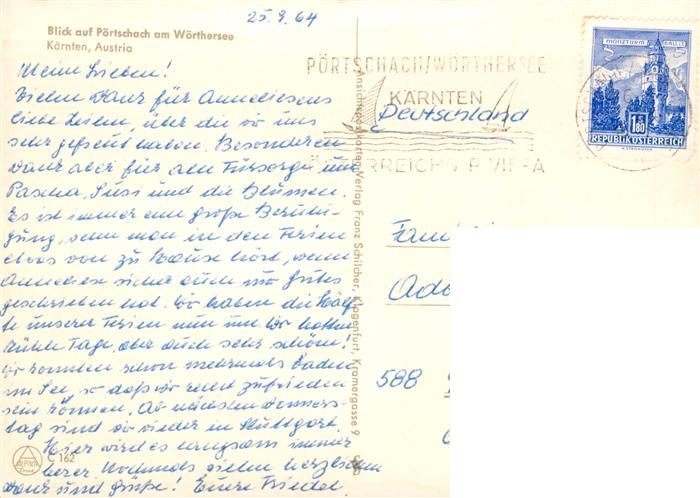 25.9.64
Blick auf Pörtschach am Wörthersee
Kärnten, Austria
Meine Lieben!
Vielen Dank für Anneliesens
liebe Zeilen, über die wir uns
sehr gefreut haben. Besonderen
Dank aber für die Fürsorge um
Pascha, Susi und die Blumen.
Es ist immer eine große Beruhi-
gung, wenn man in den Ferien
etwas von zu Hause hört, wenn
Anneliese sicher auch nur Gutes
geschrieben hat. Wir haben die Hälf-
te unserer Ferien nun um. Wir hatten
kühle Tage, aber auch sehr schöne!
Wir konnten schon mehrmals baden
im See, so daß wir recht zufrieden
sein können. Ab nächsten Donners-
tag sind wir wieder in Stuttgart.
Hier wird es langsam immer
leerer. Nochmals vielen herzlichen
Dank und Grüße! Eure Friedel.
ALPINA
C 162
Ansichtspostkarten-Verlag Franz Schilcher, Klagenfurt, Kramergasse 9
PÖRTSCHACH/WÖRTHERSEE
KÄRNTEN
ÖSTERREICHS RIVIERA
Deutschland
MÜNZTURM HALL I.T.
S 1.80
REPUBLIK ÖSTERREICH
Famili
Ado
588